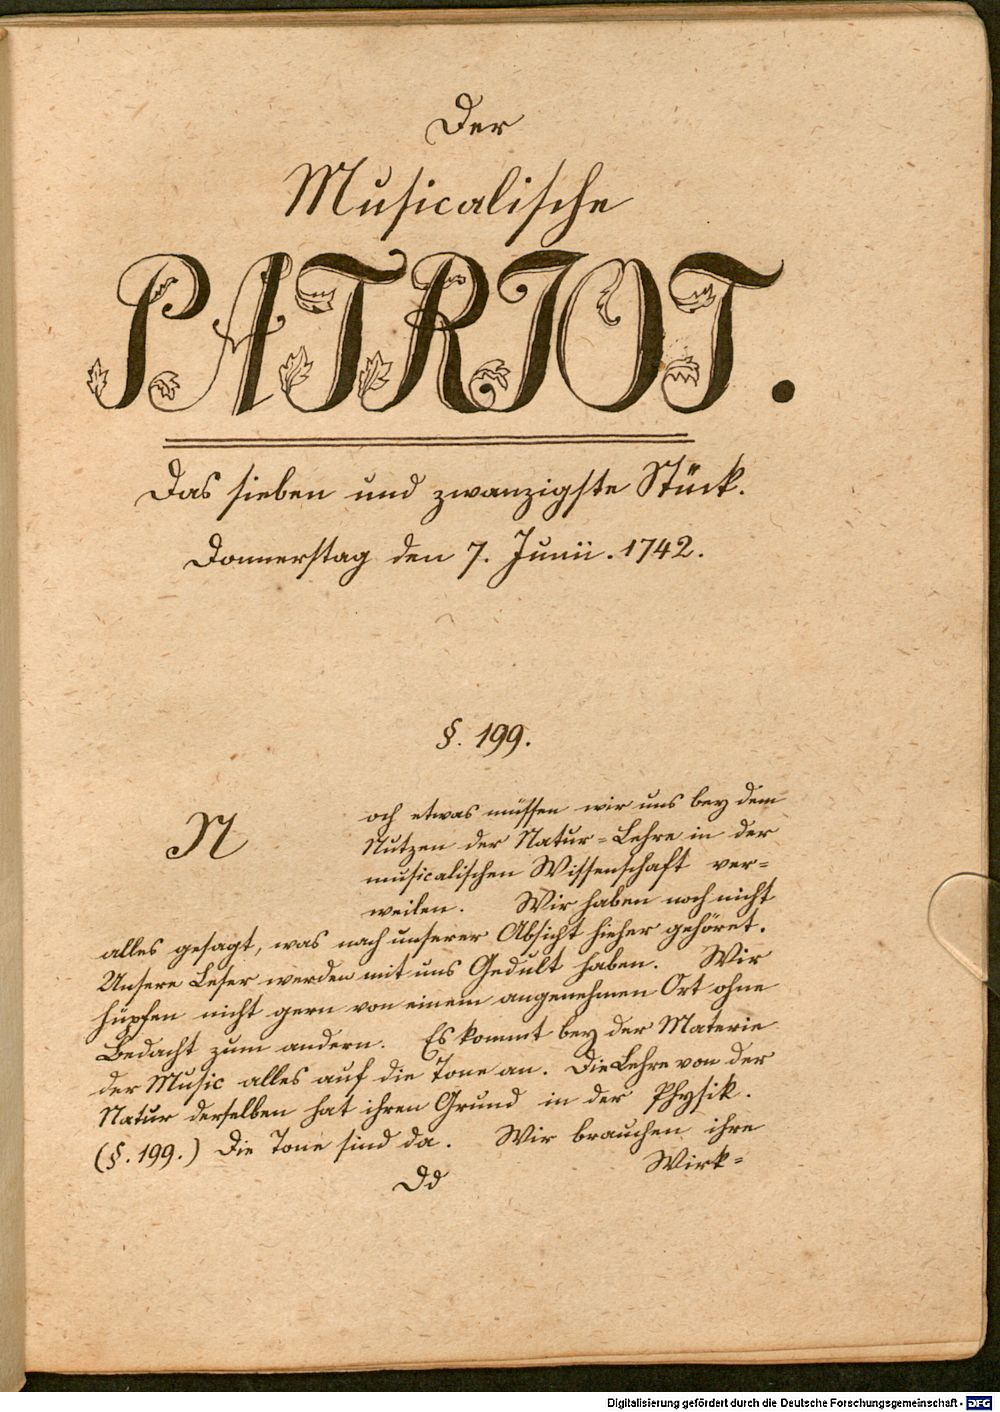 Der
Musicalische
PATRIOT.
Das sieben und zwanzigste Stück.
Donnerstag den 7. Junii. 1742.
§. 199.
Noch etwas müssen wir uns bey dem
Nutzen der Natur=Lehre in der
musicalischen Wissenschaft ver=
weilen. Wir haben noch nicht
alles gesagt, was nach unserer Absicht hieher gehöret.
Unsere Leser werden mit uns Gedult haben. Wir
hüpfen nicht gern von einem angenehmen Ort ohne
Bedacht zum andern. Es kommt bey der Materie
der Music alles auf die Tone an. Die Lehre von der
Natur derselben hat ihren Grund in der Physik.
(§. 199.) Die Tone sind da. Wir brauchen ihre
Dd Wirk=
Digitalisierung gefördert durch die Deutsche Forschungsgemeinschaft - DFG